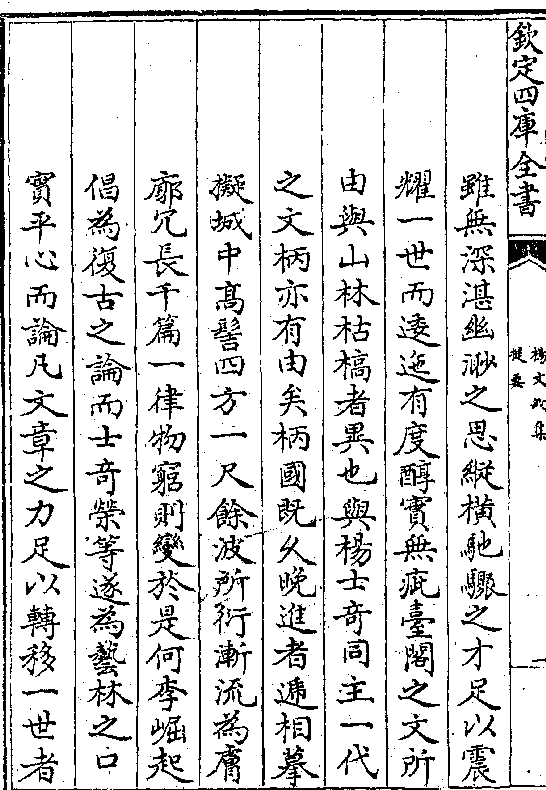 欽定四庫全書
楊文敏集
提要
雖無深湛幽渺之思縱橫馳驟之才足以震
耀一世而逶迤有度醇實無疵臺閣之文所
由與山林枯槁者異也與楊士奇同主一代
之文柄亦有由矣柄國既久晚進者遞相摹
擬城中髙髻四方一尺餘波所衍漸流為膚
廓冗長千篇一律物窮則變於是何李崛起
倡為復古之論而士奇榮等遂為藝林之口
實平心而論凡文章之力足以轉移一世者